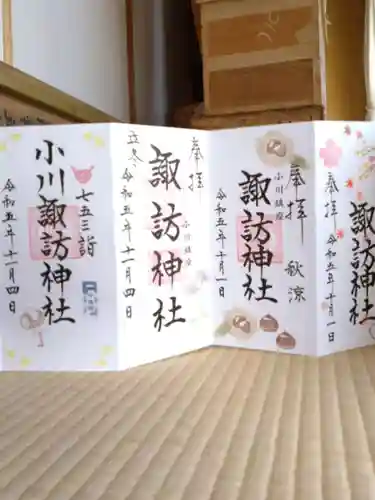 七五三詣
小川諏訪神社
令和五年十一月四日
奉拝
立冬
小川鎮座
諏訪神社
令和五年十一月四日
奉拝
秋涼
小川鎮座
諏訪神社
令和五年十月一日
奉拝
諏訪神社
令和五年十月一日